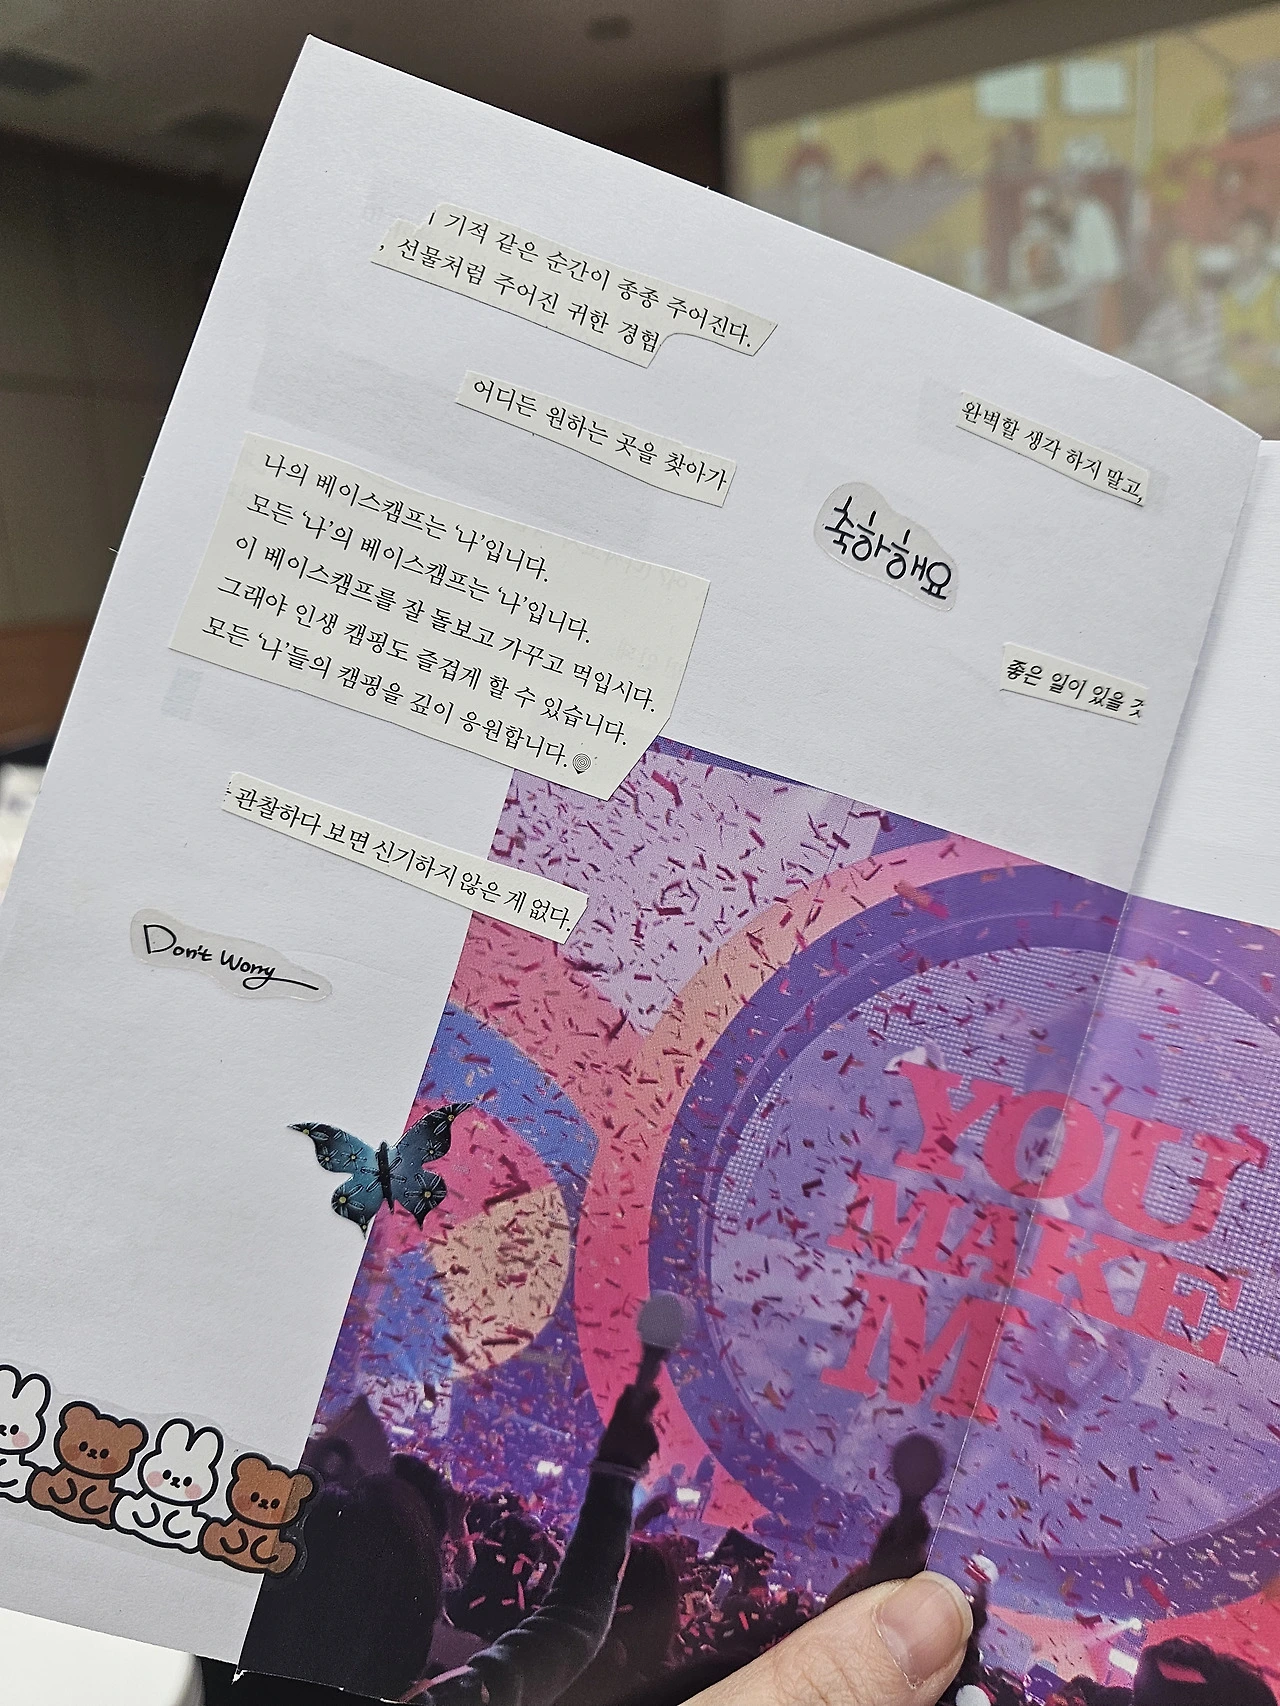 기적 같은 순간이 종종 주어진다.
, 선물처럼 주어진 귀한 경험
어디든 원하는 곳을 찾아가
완벽할 생각 하지 말고,
축하해요
나의 베이스캠프는 ‘나’입니다.
모든 ‘나’의 베이스캠프는 ‘나’입니다.
이 베이스캠프를 잘 돌보고 가꾸고 먹입시다.
그래야 인생 캠핑도 즐겁게 할 수 있습니다.
모든 ‘나’들의 캠핑을 깊이 응원합니다.
좋은 일이 있을 것
관찰하다 보면 신기하지 않은 게 없다.
Don't Worry
YOU
MAKE
M